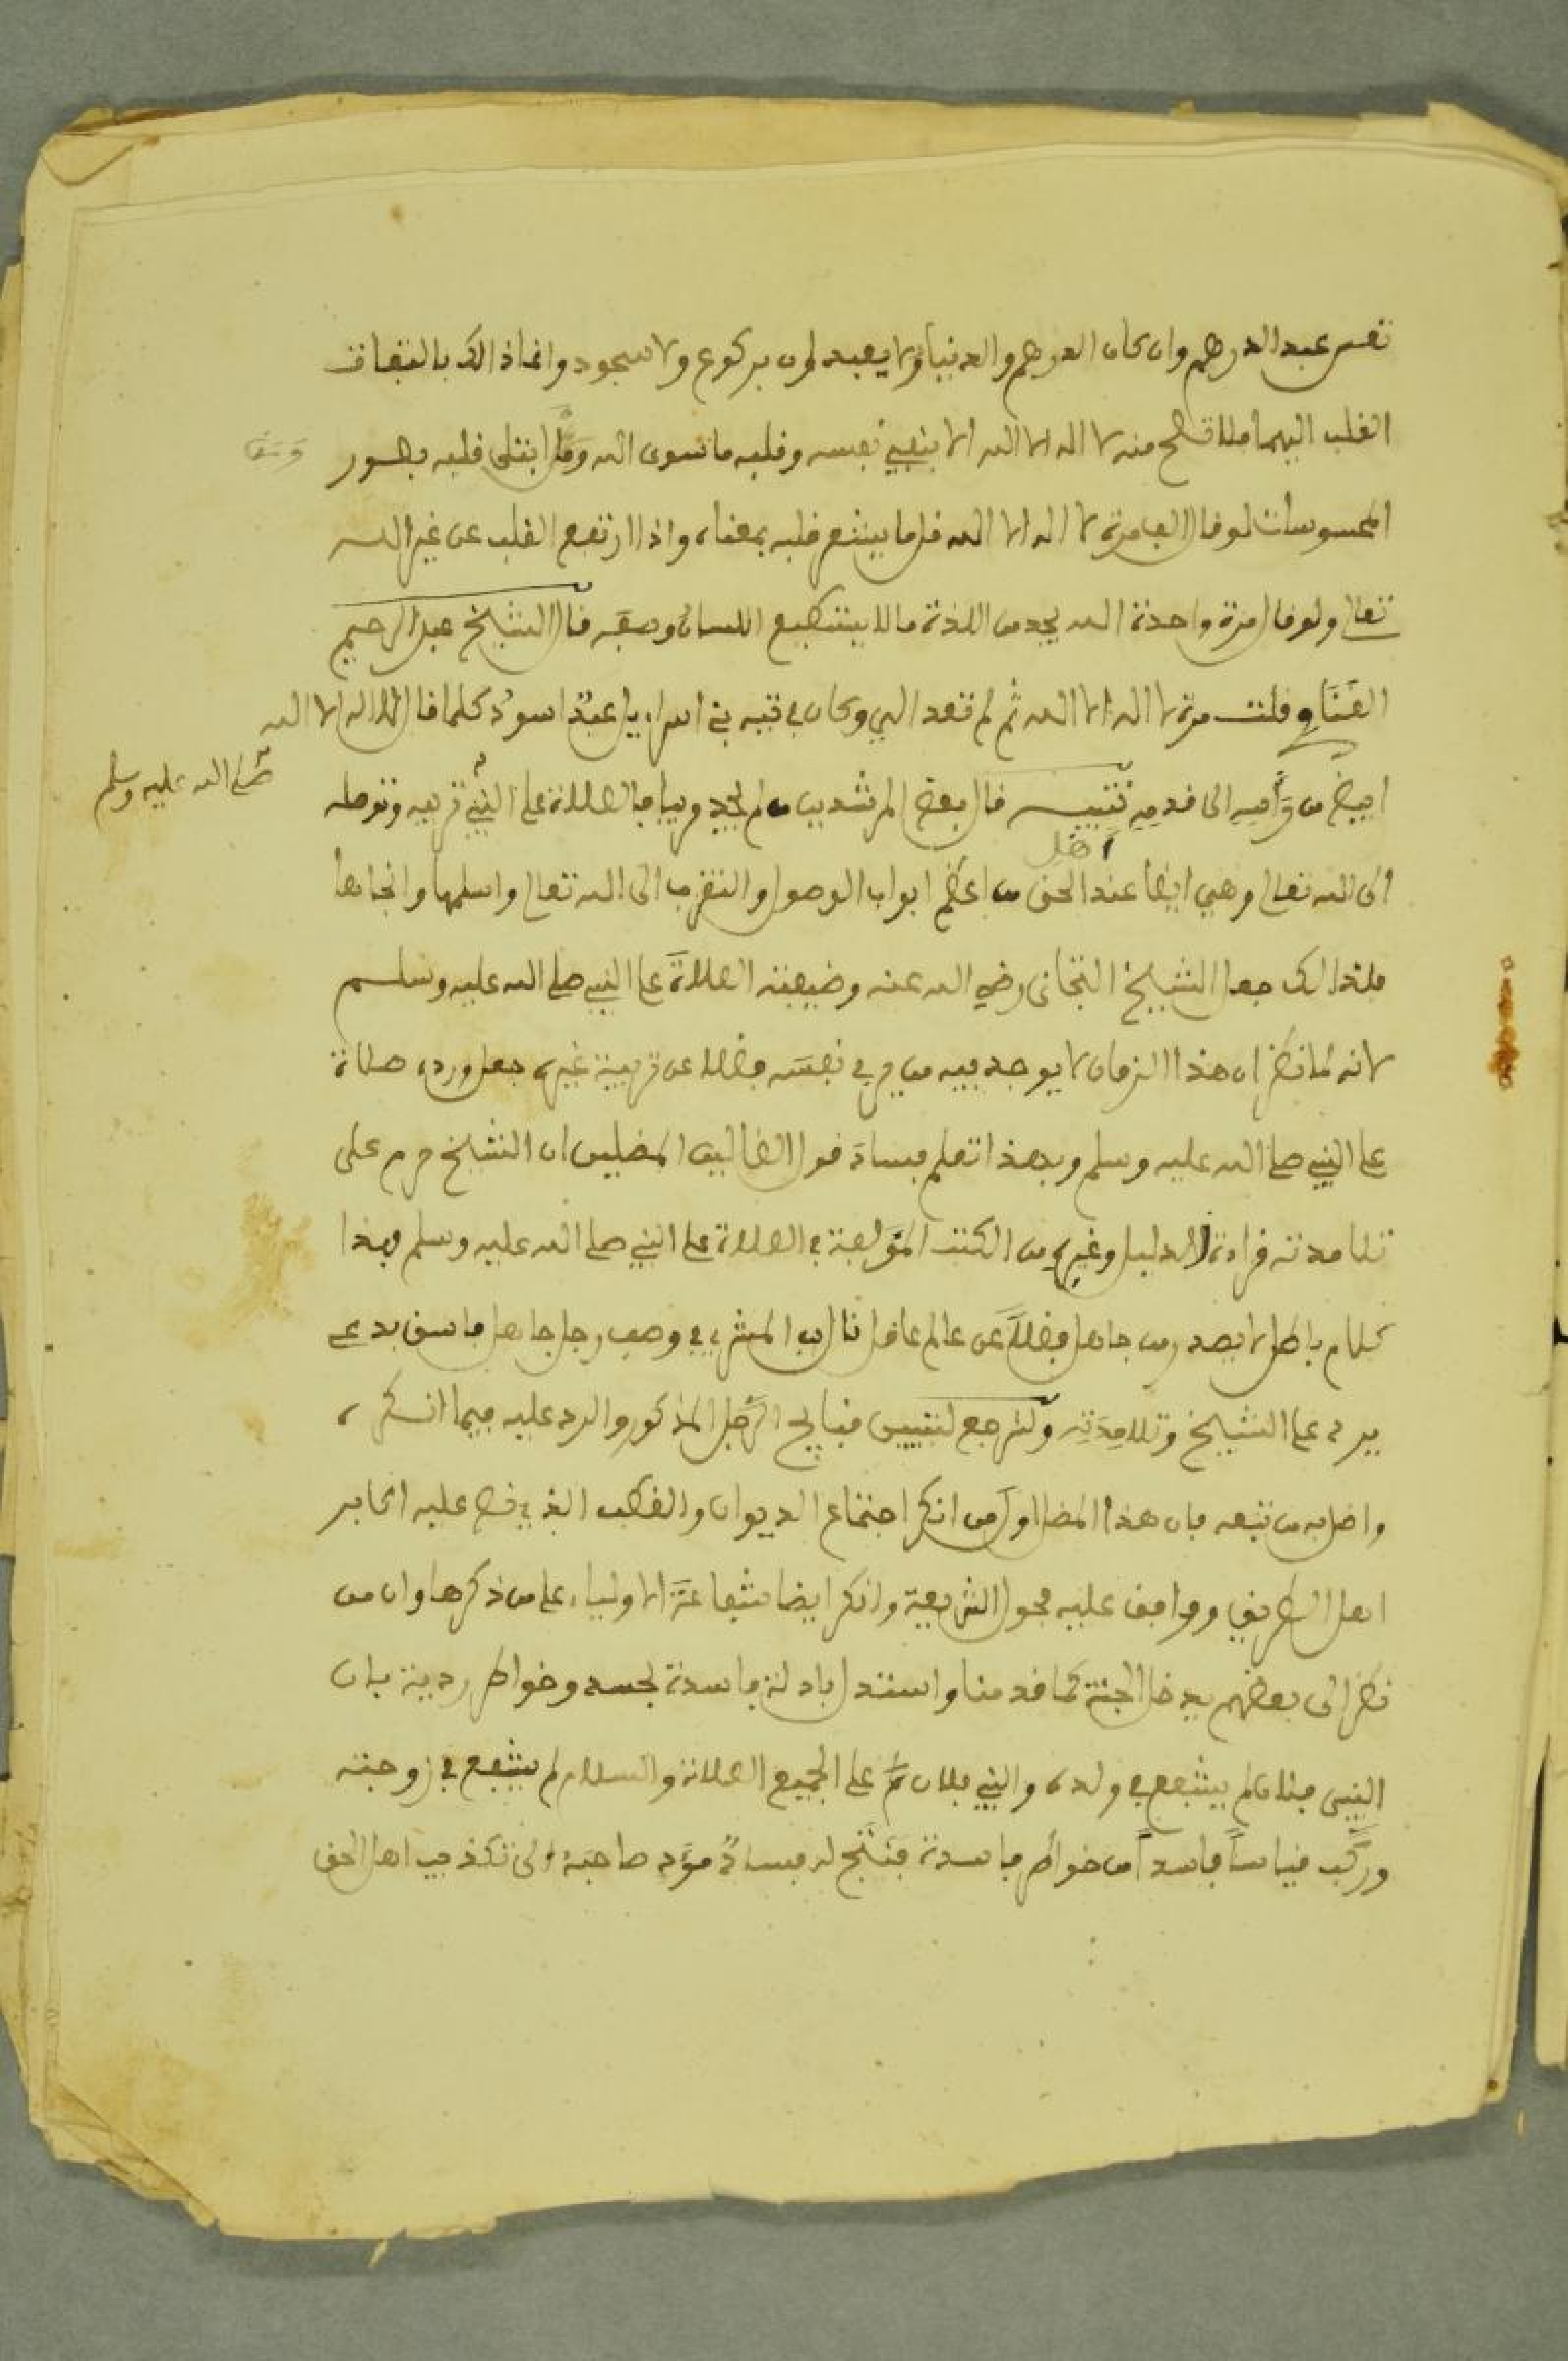 تعس عبد الدرهم وان كان الدرهم والدنيا لا يعبد لهن بركوع ولا سجود وانما ذالك بالتفات
القلب اليهما فلا تصح منه لا اله الا الله الا بنفي نفسه وقلبه ما سوى الله ومن امتلى قلبه بصور
المحسوسات لو قال الف مرة لا اله الا الله قل ما يشعر قلبه بمعناه واذا ارتفع القلب عن غير الله
تعالى ولو قال مرة واحدة الله يجد من اللذة ما لا يستطيع اللسان وصفه قال الشيخ عبد الرحيم
القناوي قلت مرة لا اله الا الله ثم لم تعد الي وكان في تيه بني اسراءيل عبد اسود كلما قال لا اله الا الله
ابيض من رأسه الى قدمه تنبيه قال بعض المرشدين من لم يجد مربيا فالصلاة على النبي تربيه وتوصله
صلى الله عليه وسلم
الى الله تعالى وهي ايضا عند اهل الحق من اعظم ابواب الوصول والتقرب الى الله تعالى واسلمها وانجاها
فلذالك جعل الشيخ التجاني رضي الله عنه وظيفته الصلاة على النبي صلى الله عليه وسلم
لانه لما نظر ان هذا الزمان لا يوجد فيه من يربي نفسه فضلا عن تربية غيره جعل ورده صلاة
على النبي صلى الله عليه وسلم وبهذا تعلم فساد قول الضالين المضلين ان الشيخ حرم على
تلامدته قراءة الدليل وغيره من الكتب المؤلفة في الصلاة على النبي صلى الله عليه وسلم فهذا
كلام باطل لا يصدر من جاهل فضلا عن عالم عاقل وصف رجل جاهل فاسق يدعي
يرد على الشيخ وتلامدته ولنرجع لتبيين قبايح الرجل المذكور والرد عليه فيما انكره
واضل به من تبعه فان هذا المضل اول من انكر اجتماع الديوان والقطب الذي نص عليه اكابر
اهل الطريق ووافق عليه فحول الشريعة وانكر ايضا شفاعة الاولياء على من ذكرها وان من
نظر الى بعضهم يدخل الجنة كما قدمنا واستدل بادلة فاسدة لجسده وخواطر ردية بان
النبي فلان لم يشفع في ولده والنبي فلان على الجميع الصلاة والسلام لم يشفع في زوجته
وركب قياسا فاسدا من خواطر فاسدة فنتج له فساد مود صاحبه الى تكذيب اهل الحق